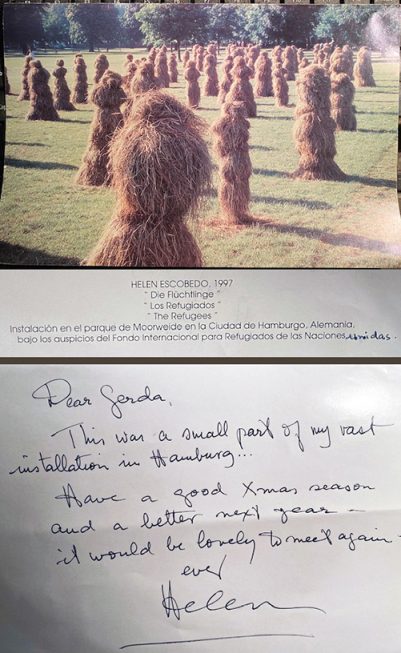 HELEN ESCOBEDO, 1997
" Die Flüchtlinge "
" Los Refugiados "
" The Refugees "
Instalación en el parque de Moorweide en la Ciudad de Hamburgo, Alemania,
bajo los auspicios del Fondo Internacional para Refugiados de las Naciones unidas.
Dear Gerda,
This was a small part of my vast
installation in Hamburg...
Have a good Xmas season
and a better next year –
it would be lovely to meet again –
ever
Helen